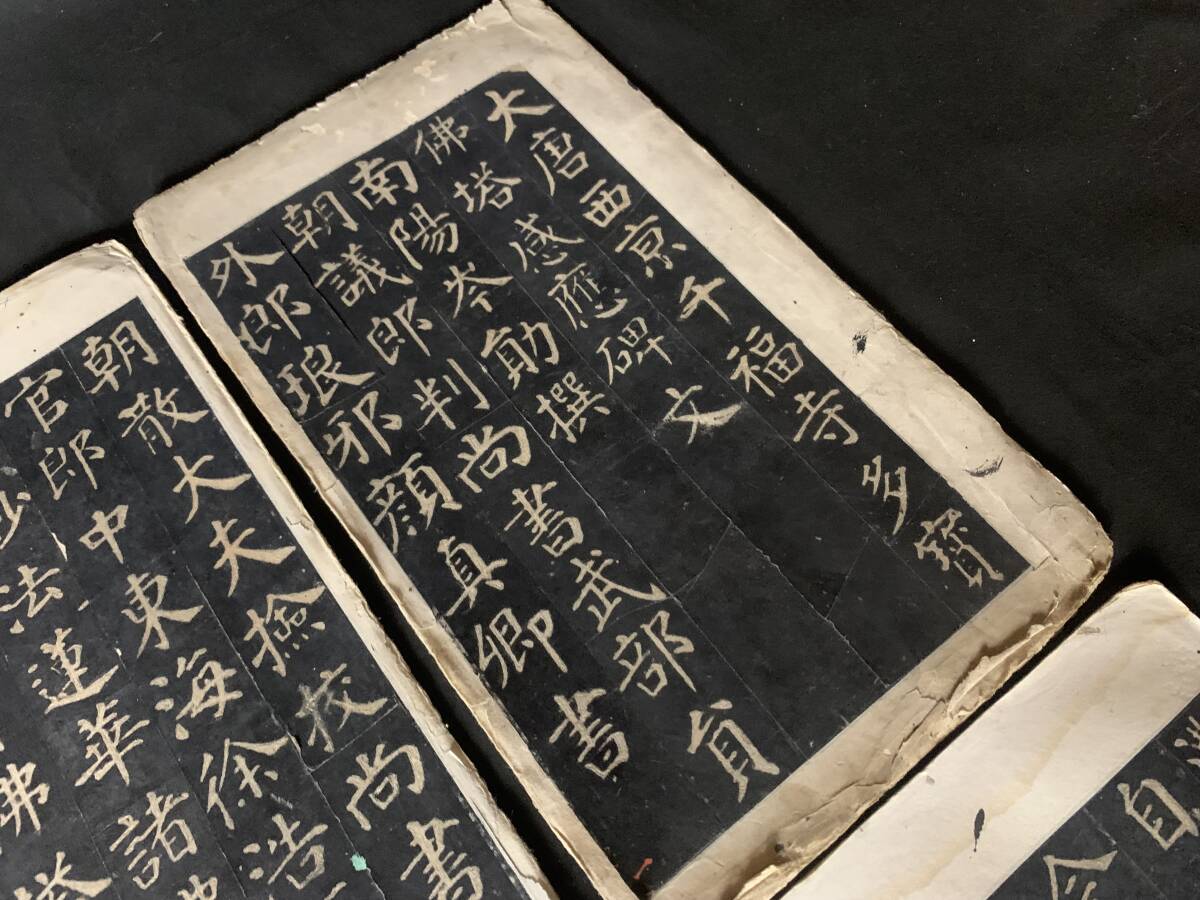 大唐西京千福寺多寳
佛塔感應碑文
南陽岑勛撰
朝議郎判尚書武部員
外郎琅邪顔真卿書
朝散大夫撿校尚書
官郎中東海徐浩
妙法蓮華諸
佛
塔
自
念